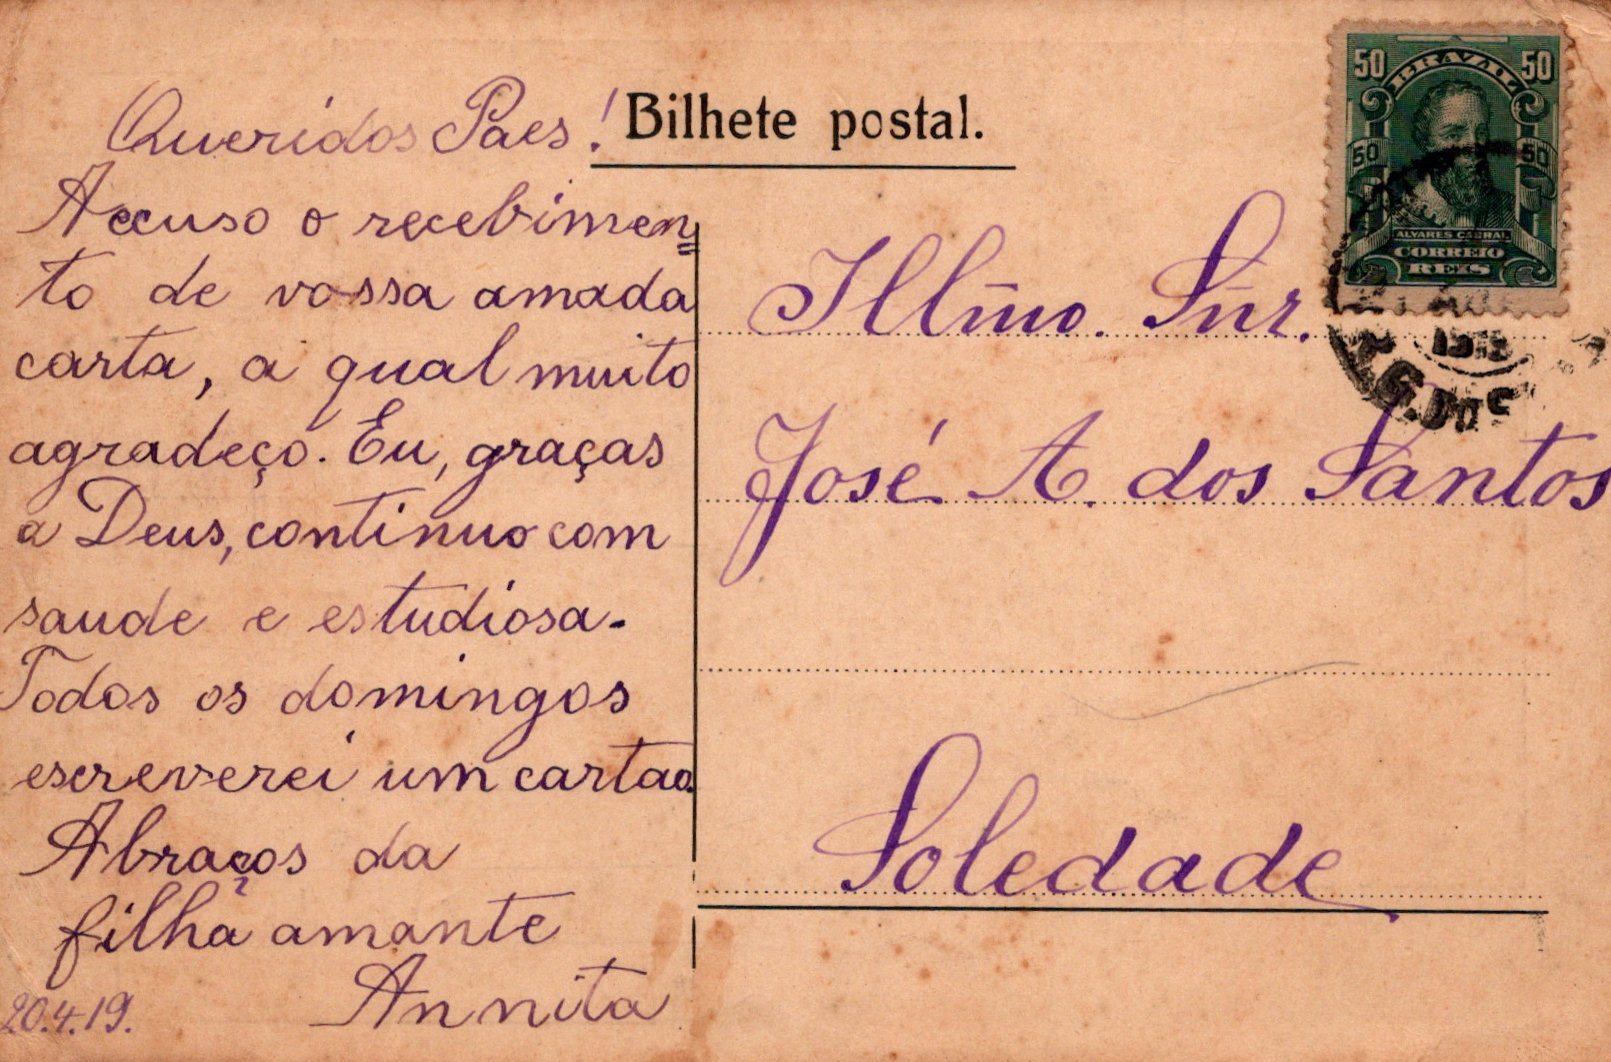 Bilhete postal.
Queridos Paes!
Accuso o recebimen=
to de vossa amada
carta, a qual muito
agradeço. Eu, graças
a Deus, continuo com
saude e estudiosa.
Todos os domingos
escreverei um cartao.
Abraços da
filha amante
Annita
20.4.19.
Illmo. Snr.
José A. dos Santos
Soledade
50 BRAZIL 50
50 50
ALVARES CABRAL
CORREIO
REIS